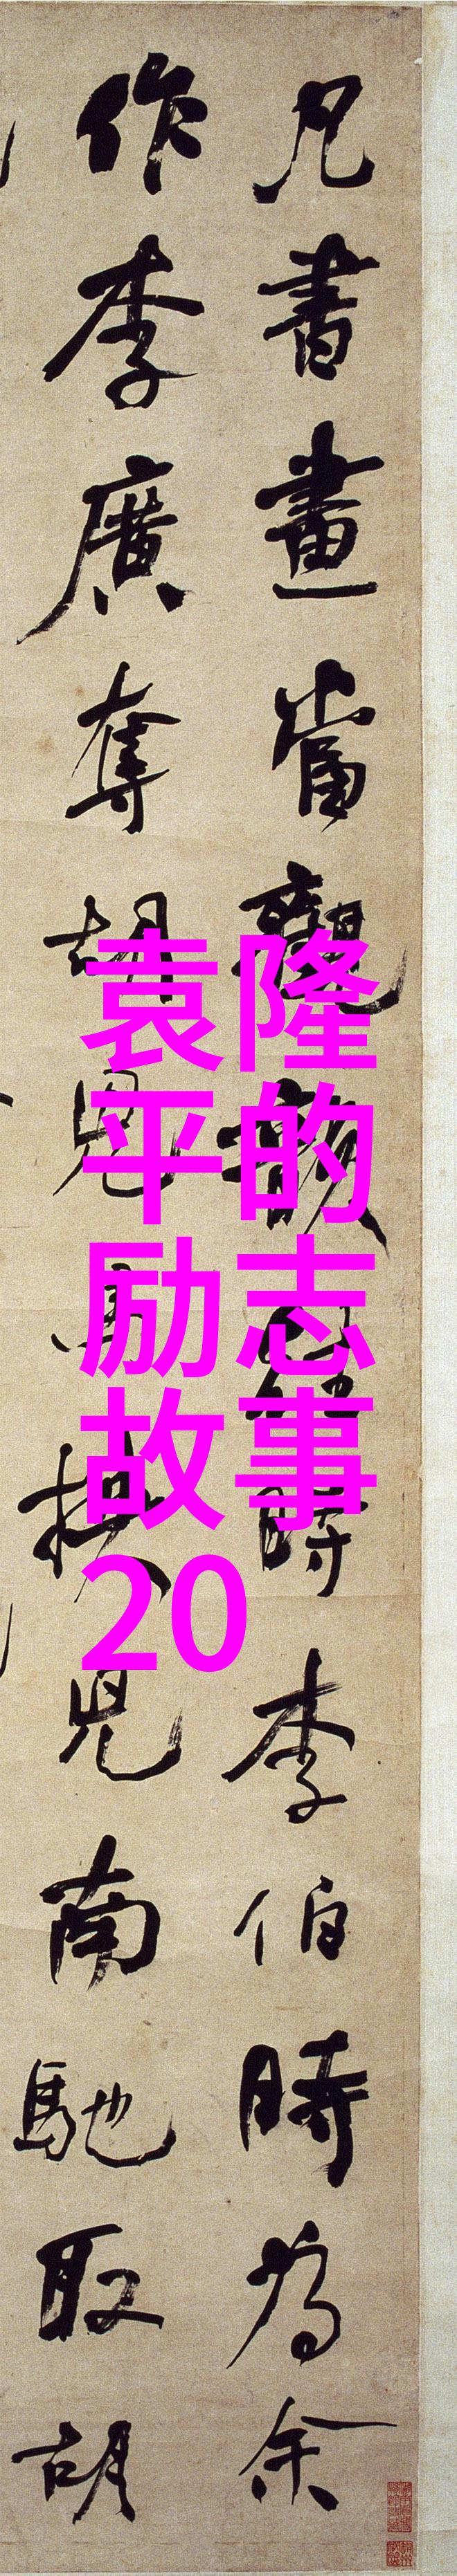 凡書畫當觀韻往時李伯時為余
作李廣奪胡兒馬挾兒南馳取胡
袁隆
平的
励志
故事
20